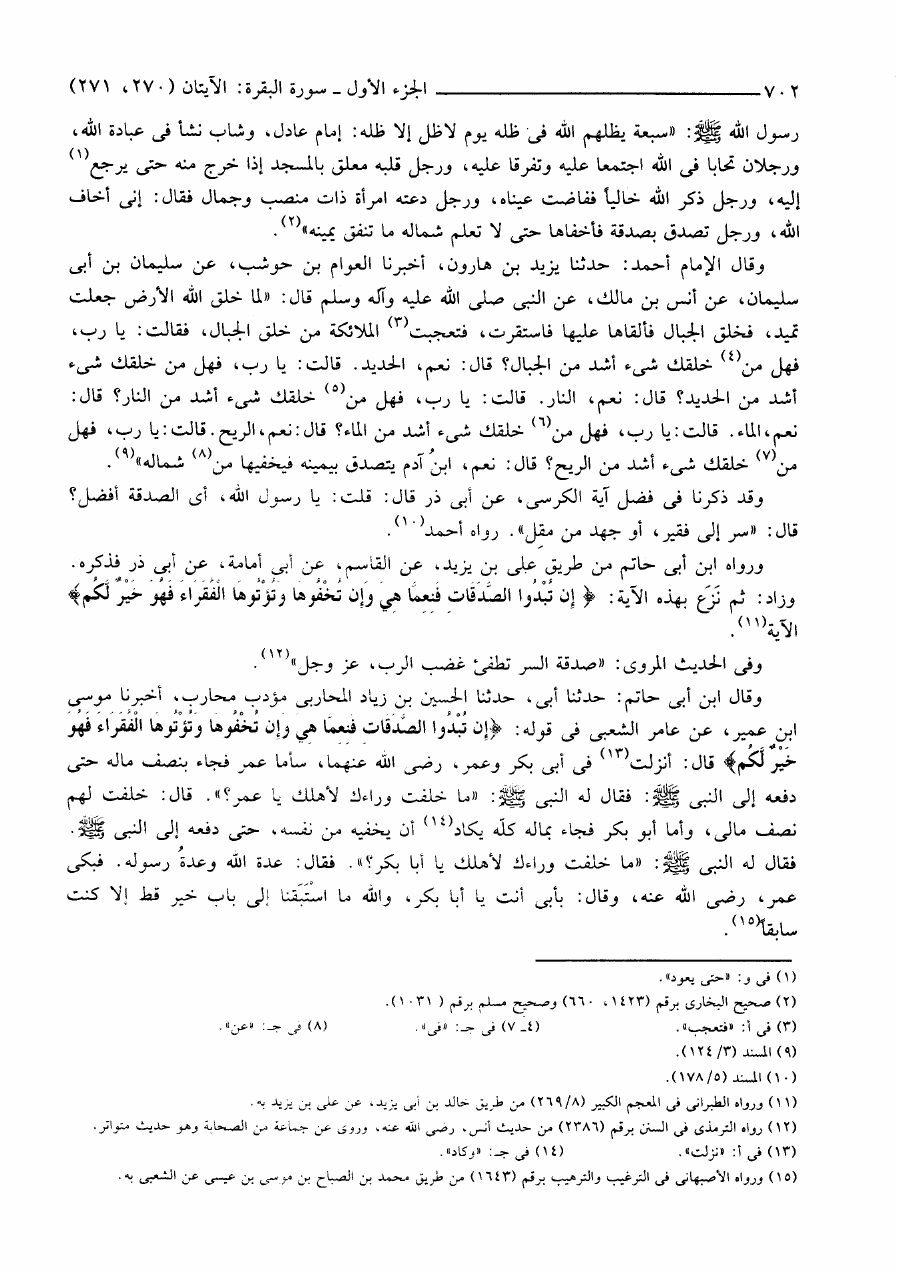 ٧٠٢ ــــــــــــــــــــــــــــــــــــــــــ الجزء الأول ـ سورة البقرة: الآيتان (٢٧٠، ٢٧١)
رسول الله ﷺ: «سبعة يظلهم الله فى ظله يوم لاظل إلا ظله: إمام عادل، وشاب نشأ فى عبادة الله،
ورجلان تحابا فى الله اجتمعا عليه وتفرقا عليه، ورجل قلبه معلق بالمسجد إذا خرج منه حتى يرجع(١)
إليه، ورجل ذكر الله خالياً ففاضت عيناه، ورجل دعته امرأة ذات منصب وجمال فقال: إنى أخاف
الله، ورجل تصدق بصدقة فأخفاها حتى لا تعلم شماله ما تنفق يمينه»(٢).
وقال الإمام أحمد: حدثنا يزيد بن هارون، أخبرنا العوام بن حوشب، عن سليمان بن أبى
سليمان، عن أنس بن مالك، عن النبى صلى الله عليه وآله وسلم قال: «لما خلق الله الأرض جعلت
تميد، فخلق الجبال فألقاها عليها فاستقرت، فتعجبت(٣) الملائكة من خلق الجبال، فقالت: يا رب،
فهل من(٤) خلقك شىء أشد من الجبال؟ قال: نعم، الحديد. قالت: يا رب، فهل من خلقك شىء
أشد من الحديد؟ قال: نعم، النار. قالت: يا رب، فهل من(٥) خلقك شىء أشد من النار؟ قال:
نعم،الماء. قالت:يا رب، فهل من(٦) خلقك شىء أشد من الماء؟ قال:نعم،الريح.قالت:يا رب، فهل
من(٧) خلقك شىء أشد من الريح؟ قال: نعم، ابنُ آدم يتصدق بيمينه فيخفيها من(٨) شماله»(٩).
وقد ذكرنا فى فضل آية الكرسى، عن أبى ذر قال: قلت: يا رسول الله، أى الصدقة أفضل؟
قال: «سر إلى فقير، أو جهد من مقِل». رواه أحمد(١٠).
ورواه ابن أبى حاتم من طريق على بن يزيد، عن القاسم، عن أبى أمامة، عن أبى ذر فذكره.
وزاد: ثم نَزَع بهذه الآية: ﴿ إِن تُبْدُوا الصَّدَقَاتِ فَنِعِمَّا هِيَ وَإِن تُخْفُوهَا وَتُؤْتُوهَا الْفُقَرَاءَ فَهُوَ خَيْرٌ لَّكُمْ﴾
الآية(١١).
وفى الحديث المروى: «صدقة السر تطفئ غضب الرب، عز وجل»(١٢).
وقال ابن أبى حاتم: حدثنا أبى، حدثنا الحسين بن زياد المحاربى مؤدب محارب، أخبرنا موسى
ابن عمير، عن عامر الشعبى فى قوله: ﴿إِن تُبْدُوا الصَّدَقَاتِ فَنِعِمَّا هِيَ وَإِن تُخْفُوهَا وَتُؤْتُوهَا الْفُقَرَاءَ فَهُوَ
خَيْرٌ لَّكُمْ﴾ قال: أنزلت(١٣) فى أبى بكر وعمر، رضى الله عنهما، سأما عمر فجاء بنصف ماله حتى
دفعه إلى النبى ﷺ: فقال له النبى ﷺ: «ما خلفت وراءك لأهلك يا عمر؟». قال: خلفت لهم
نصف مالى، وأما أبو بكر فجاء بماله كلّه يكاد(١٤) أن يخفيه من نفسه، حتى دفعه إلى النبى ﷺ.
فقال له النبى ﷺ: «ما خلفت وراءك لأهلك يا أبا بكر؟». فقال: عدة الله وعدةُ رسوله. فبكى
عمر، رضى الله عنه، وقال: بأبى أنت يا أبا بكر، والله ما استَبَقنا إلى باب خير قط إلا كنت
سابقا(١٥).
(١) فى و: «حتى يعود».
(٢) صحيح البخارى برقم (١٤٢٣، ٦٦٠) وصحيح مسلم برقم ( ١٠٣١).
(٣) فى أ: «فتعجب». (٤ـ ٧) فى جـ: «فى». (٨) فى جـ: «عن».
(٩) المسند (٣/ ١٢٤).
(١٠) المسند (٥/ ١٧٨).
(١١) ورواه الطبرانى فى المعجم الكبير (٨/ ٢٦٩) من طريق خالد بن أبى يزيد، عن على بن يزيد به.
(١٢) رواه الترمذى فى السنن برقم (٢٣٨٦) من حديث أنس، رضى الله عنه، وروى عن جماعة من الصحابة وهو حديث متواتر.
(١٣) فى أ: «نزلت». (١٤) فى جـ: «وكاد».
(١٥) ورواه الأصبهانى فى الترغيب والترهيب برقم (١٦٤٣) من طريق محمد بن الصباح بن موسى بن عيسى عن الشعبى به.